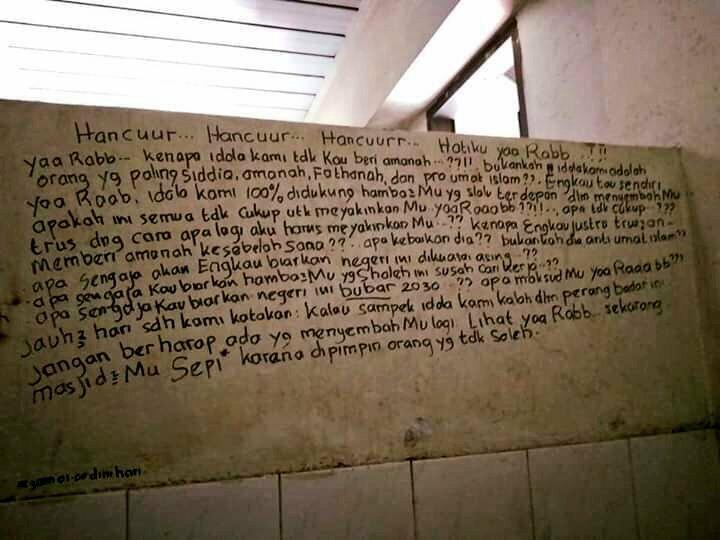 Hancuur... Hancuur... Hancuurr... Hatiku yaa Rabb..?!!
yaa Rabb... kenapa idola kami tdk Kau beri amanah...??!! bukankah idola kami adalah
orang yg paling Siddiq, amanah, Fathanah, dan pro umat islam??. Engkau tau sendiri
yaa Raab, idola kami 100% didukung hamba2 Mu yg slalu terdepan dlm menyembah Mu...
apakah ini semua tdk cukup utk meyakinkan Mu yaa Raaabb??!!.. apa tdk cukup..???
trus dng cara apa lagi aku harus meyakinkan Mu..?? kenapa Engkau justru
memberi amanah kesebelah sana??..apa kebaikan dia?? bukankah dia anti umat islam??
apa sengaja akan Engkau biarkan negeri ini dikuasai asing..??
apa sengaja Kau biarkan hamba2 Mu yg Sholeh ini susah cari kerja..??
apa sengaja Kau biarkan negeri ini bubar 2030...?? apa maksud Mu yaa Raaabb???
Jauh2 hari sdh kami katakan: kalau sampek idola kami kalah dlm perang badar ini
jangan berharap ada yg menyembah Mu lagi. Lihat yaa Rabb.. sekarang
masjid2 Mu Sepi karana dipimpin orang yg tdk Soleh.
dinihari